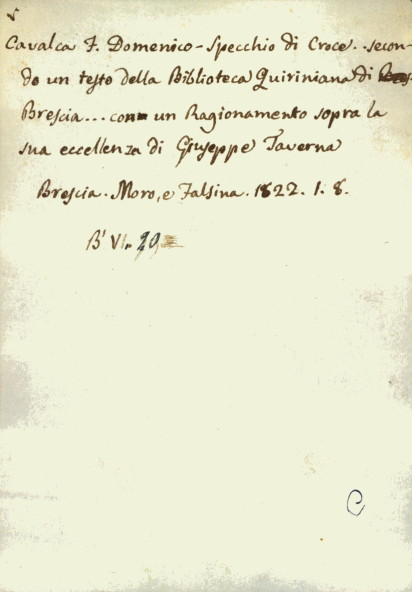 Cavalca F. Domenico - Specchio di Croce.. secon-
do un testo della Biblioteca Quiriniana di
Brescia... con un Ragionamento sopra la
sua eccellenza di Giuseppe Taverna
Brescia. Moro, e Falsina. 1822. 1. 8.
B' VI. 20,
C